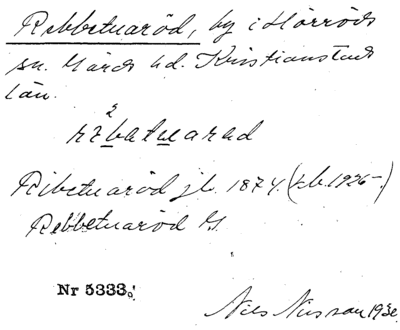 Rebbetuaröd, by i Hörröds
sn. Gärds hd. Kristianstads
län.
Ribetuaröd jb. 1874. (rb. 1926-.)
Rebbetuaröd
Nr 5333.
Nils Nilsson 1930